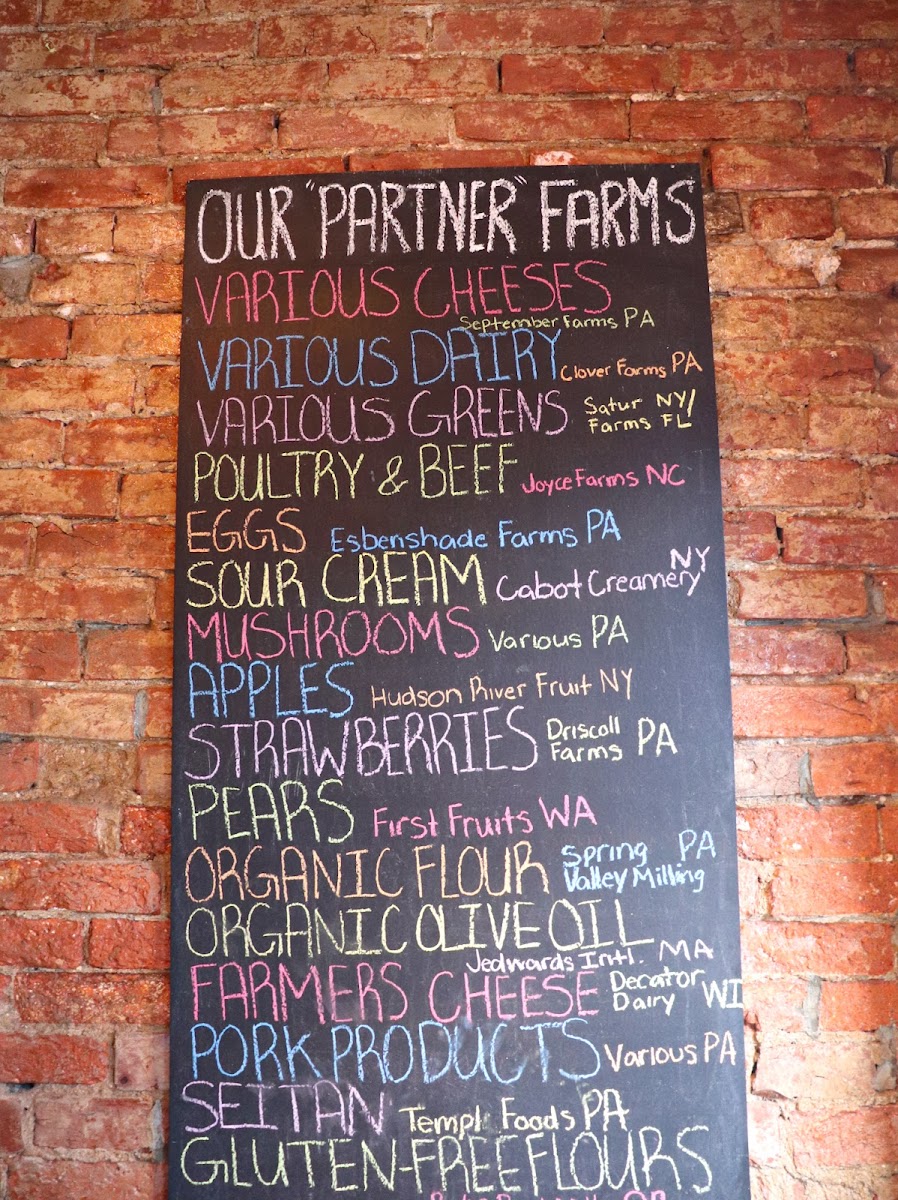 OUR "PARTNER" FARMS
VARIOUS CHEESES
September Farms PA
VARIOUS DAIRY Clover Farms PA
VARIOUS GREENS Satur NY/
Farms FL
POULTRY & BEEF Joyce Farms NC
EGGS Esbenshade Farms PA
SOUR CREAM Cabot Creamery NY
MUSHROOMS Various PA
APPLES Hudson River Fruit NY
STRAWBERRIES Driscoll
Farms PA
PEARS First Fruits WA
ORGANIC FLOUR Spring PA
Valley Milling
ORGANIC OLIVE OIL
Jedwards Intl. MA
FARMERS CHEESE Decator
Dairy WI
PORK PRODUCTS Various PA
SEITAN Templ Foods PA
GLUTEN-FREE FLOURS